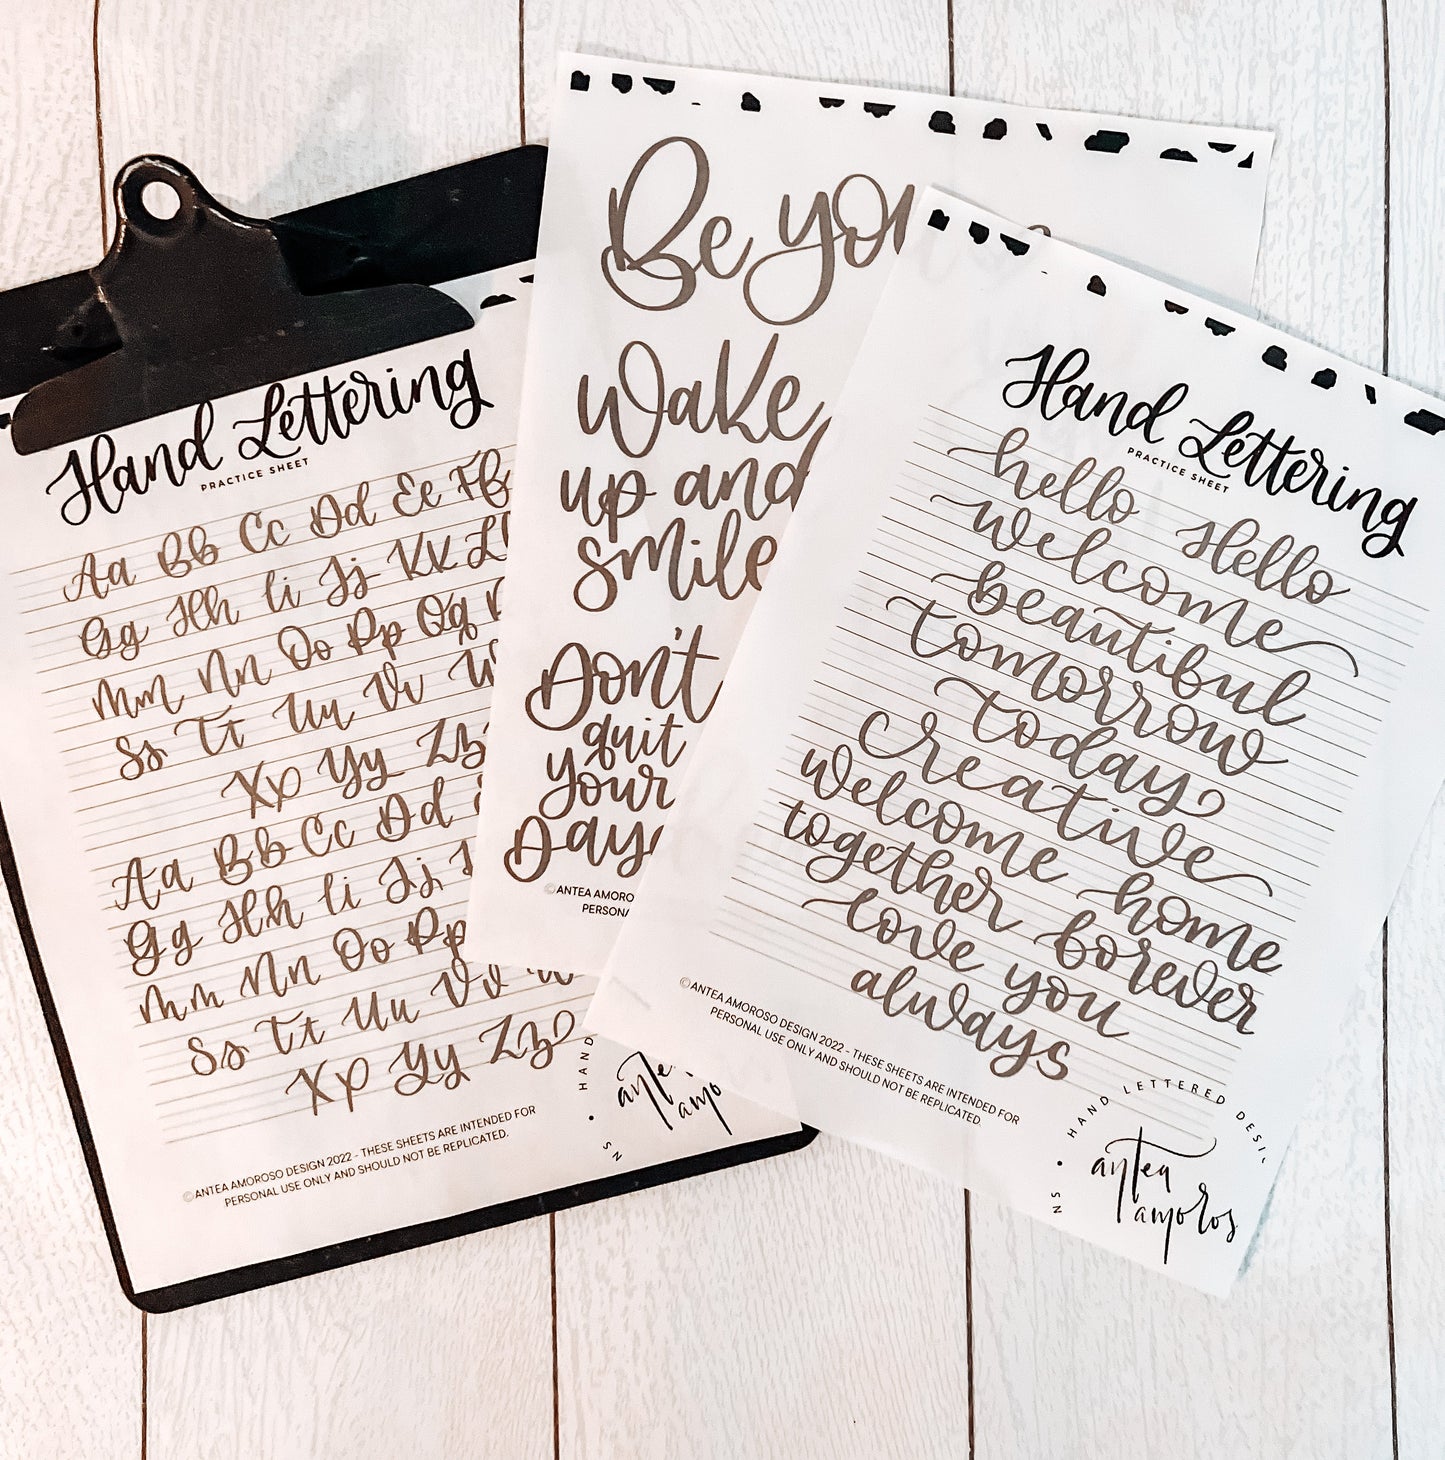 Hand Lettering
PRACTICE SHEET
Aa Bb Cc Dd Ee Ff
Gg Hh Ii Jj Kk Ll
Mm Nn Oo Pp Qq
Ss Tt Uu Vv
Xx Yy Zz
Aa Bb Cc Dd
Gg Hh Ii Jj
Mm Nn Oo Pp
Ss Tt Uu Vv
Xx Yy Zz
©ANTEA AMOROSO DESIGN 2022 - THESE SHEETS ARE INTENDED FOR
PERSONAL USE ONLY AND SHOULD NOT BE REPLICATED.
HAND
NS
Be you
Wake
up and
smile
Don't
quit
your
Day
©ANTEA AMORO
PERSONA
Hand Lettering
PRACTICE SHEET
hello Hello
welcome
beautiful
tomorrow
today
Creative
Welcome home
together forever
love you
always
©ANTEA AMOROSO DESIGN 2022 - THESE SHEETS ARE INTENDED FOR
PERSONAL USE ONLY AND SHOULD NOT BE REPLICATED.
HAND LETTERED DESI
NS
antea
amoros